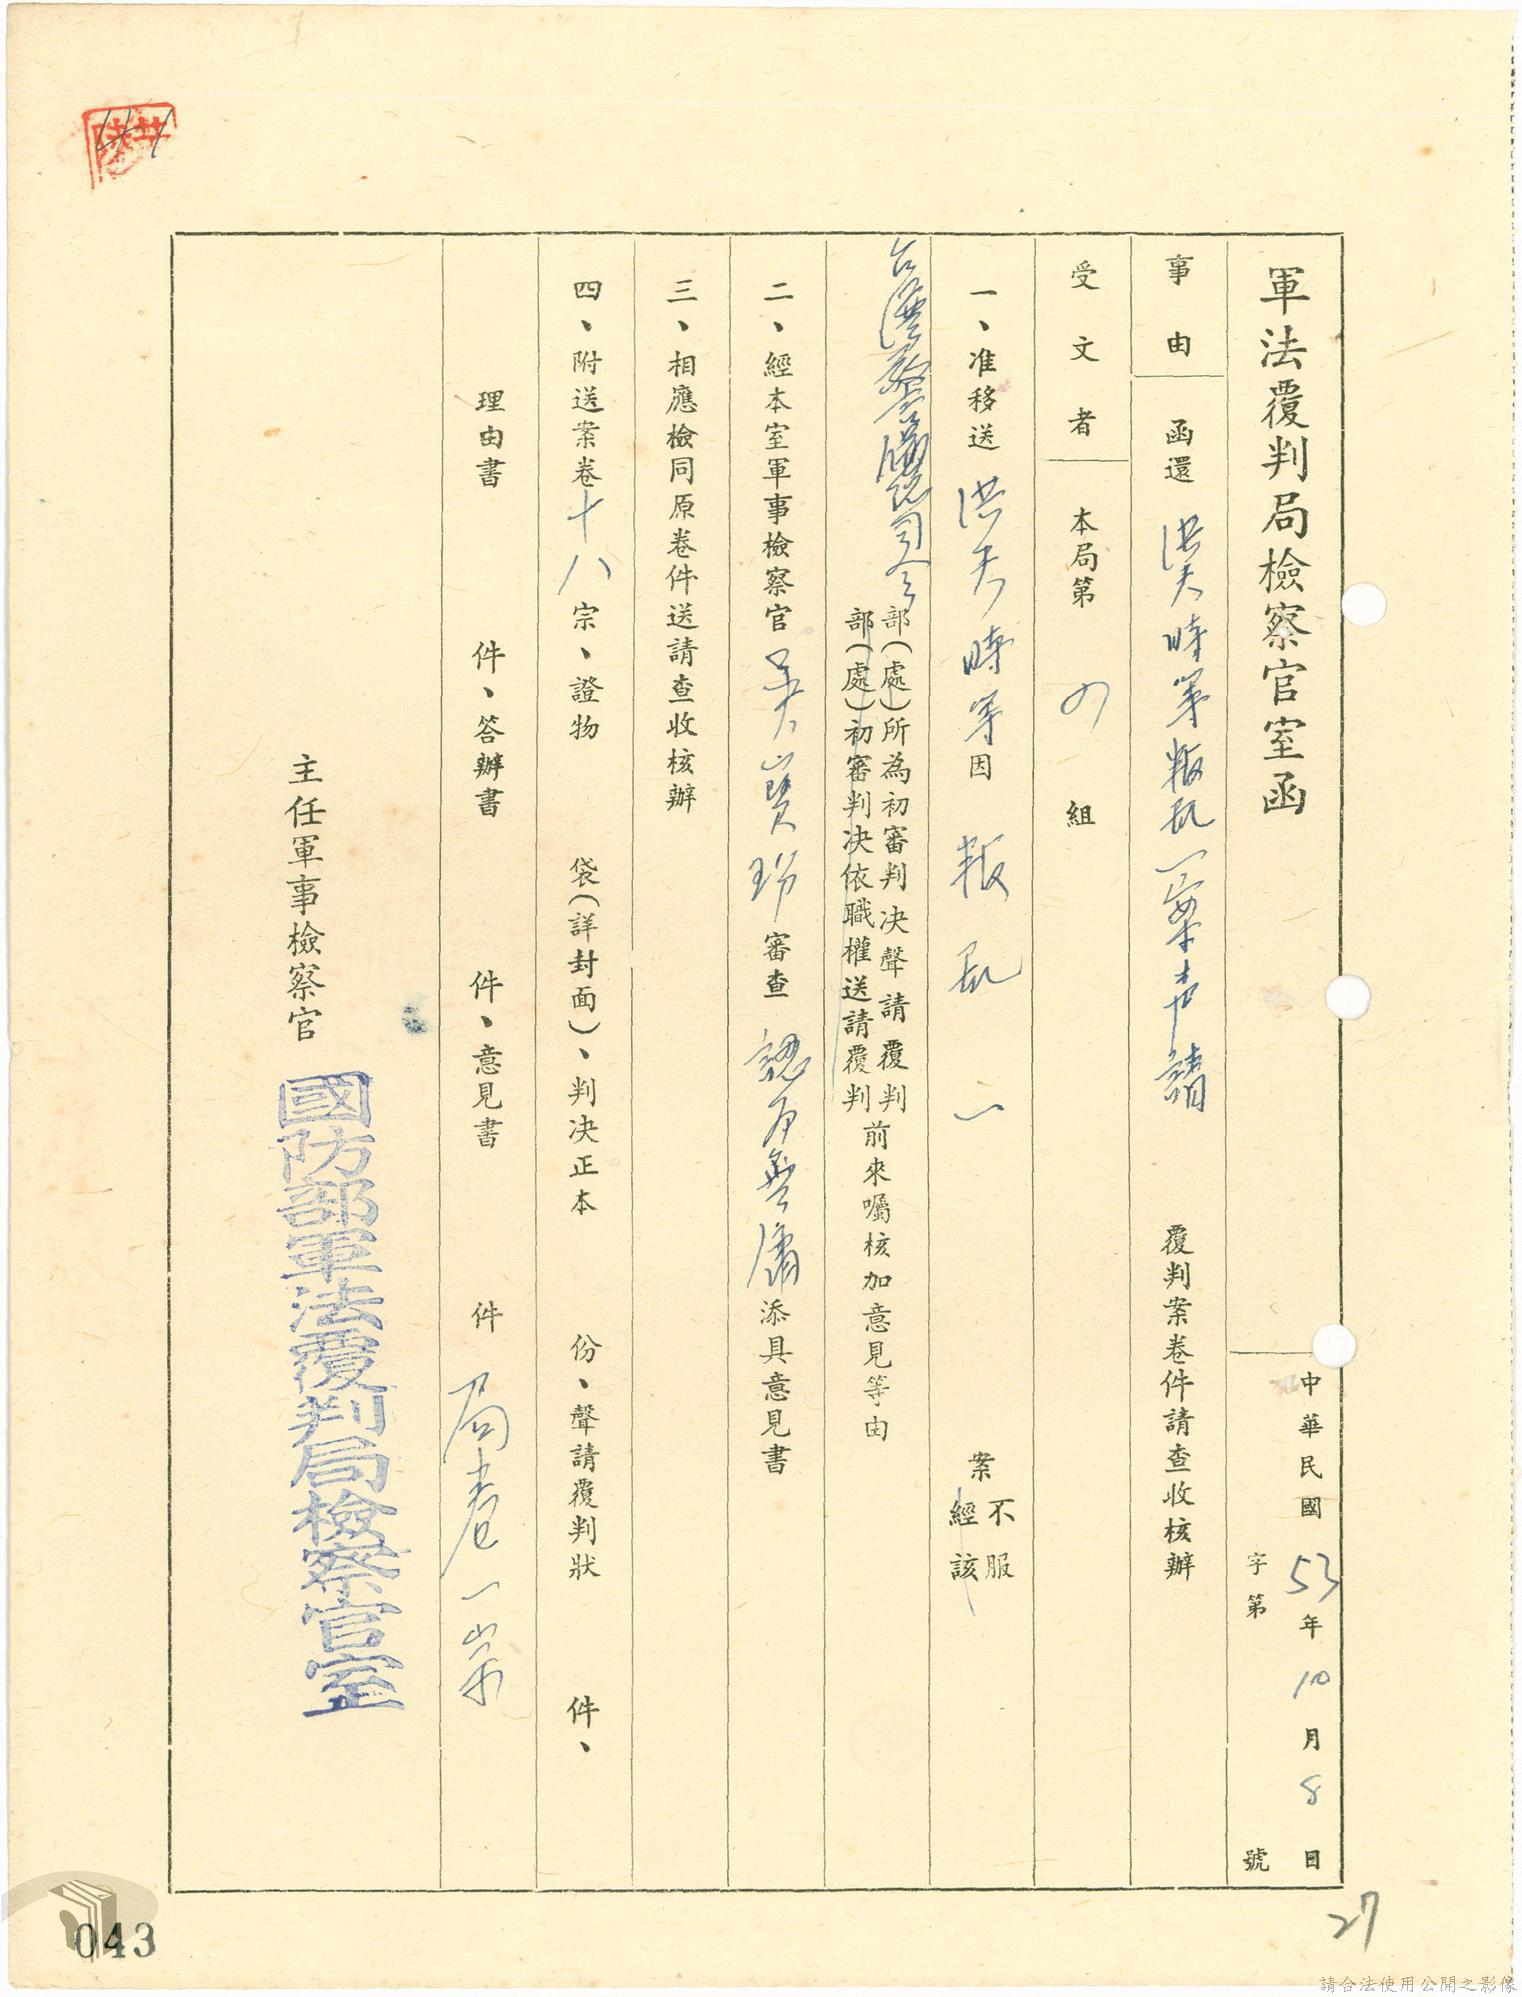 軍法覆判局檢察官室函
中華民國53年10月8日
字第 號
事由 函還 洪天時等叛乱一案声請 覆判案卷件請查收核辦
受文者 本局第 四 組
一、准移送 洪天時等 因 叛乱 一 案 不服
經該
台灣警備總司令部(處)所為初審判決聲請覆判
部(處)初審判決依職權送請覆判
前來囑核加意見等由
二、經本室軍事檢察官 審查 認為無庸 添具意見書
三、相應檢同原卷件送請查收核辦
四、附送案卷十八宗、證物 袋(詳封面)、判決正本 份、聲請覆判狀 件、
理由書 件、答辦書 件、意見書 件 局卷一宗
主任軍事檢察官
國防部軍法覆判局檢察官室
27
043
請合法使用公開之影像